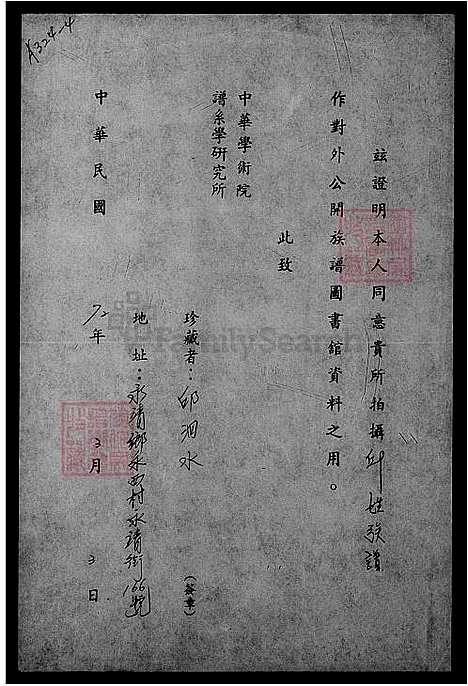 A324-4
茲證明本人同意貴所拍攝邱姓族譜
作對外公開族譜圖書館資料之用。
此致
中華學術院
譜系學研究所
珍藏者：邱泗水(簽章)
地址：永靖鄉永西村永靖街166號
中華民國72年3月3日
FamilySearch